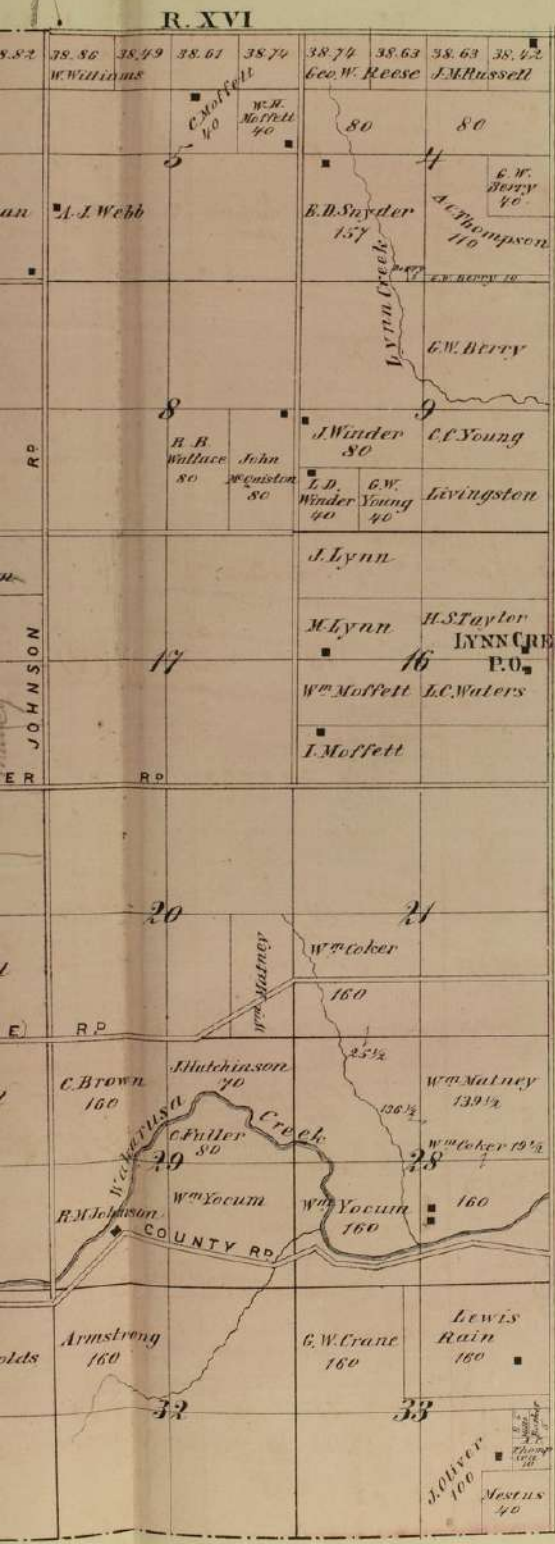 R. XVI
38.82 38.86 38.49 38.61 38.74 38.74 38.63 38.63 38.42
W. Williams
Geo. W. Reese
J. M. Russell
C. Moffett
40
W. H.
Moffett
40
80
80
5
4
G. W.
Berry
40
an
A. J. Webb
E. D. Snyder
157
A. C. Thompson
110
Lynn Creek
Berry
G. W. Berry 10
G. W. Berry
8
9
RD
R. R.
Wallace
80
John
McQuiston
80
J. Winder
80
C. C. Young
L. D.
Winder
40
G. W.
Young
40
Livingston
J. Lynn
JOHNSON
M. Lynn
H. S. Taylor
LYNN CRE
P.O.
17
16
Wm Moffett
L. C. Waters
I. Moffett
ER RD
20
21
Wm Matney
Wm Coker
160
E) RD
25 1/2
C. Brown
160
J. Hutchinson
70
Wm Matney
139 1/2
136 1/2
Wakarusa Creek
C. Fuller
80
Wm Coker 19 1/2
29
28
R. M. Johnson
Wm Yocum
Wm Yocum
160
160
COUNTY RD
olds
Armstrong
160
G. W. Crane
160
Lewis
Rain
160
32
33
J. Oliver
100
Thomp
son
10
Mestus
40